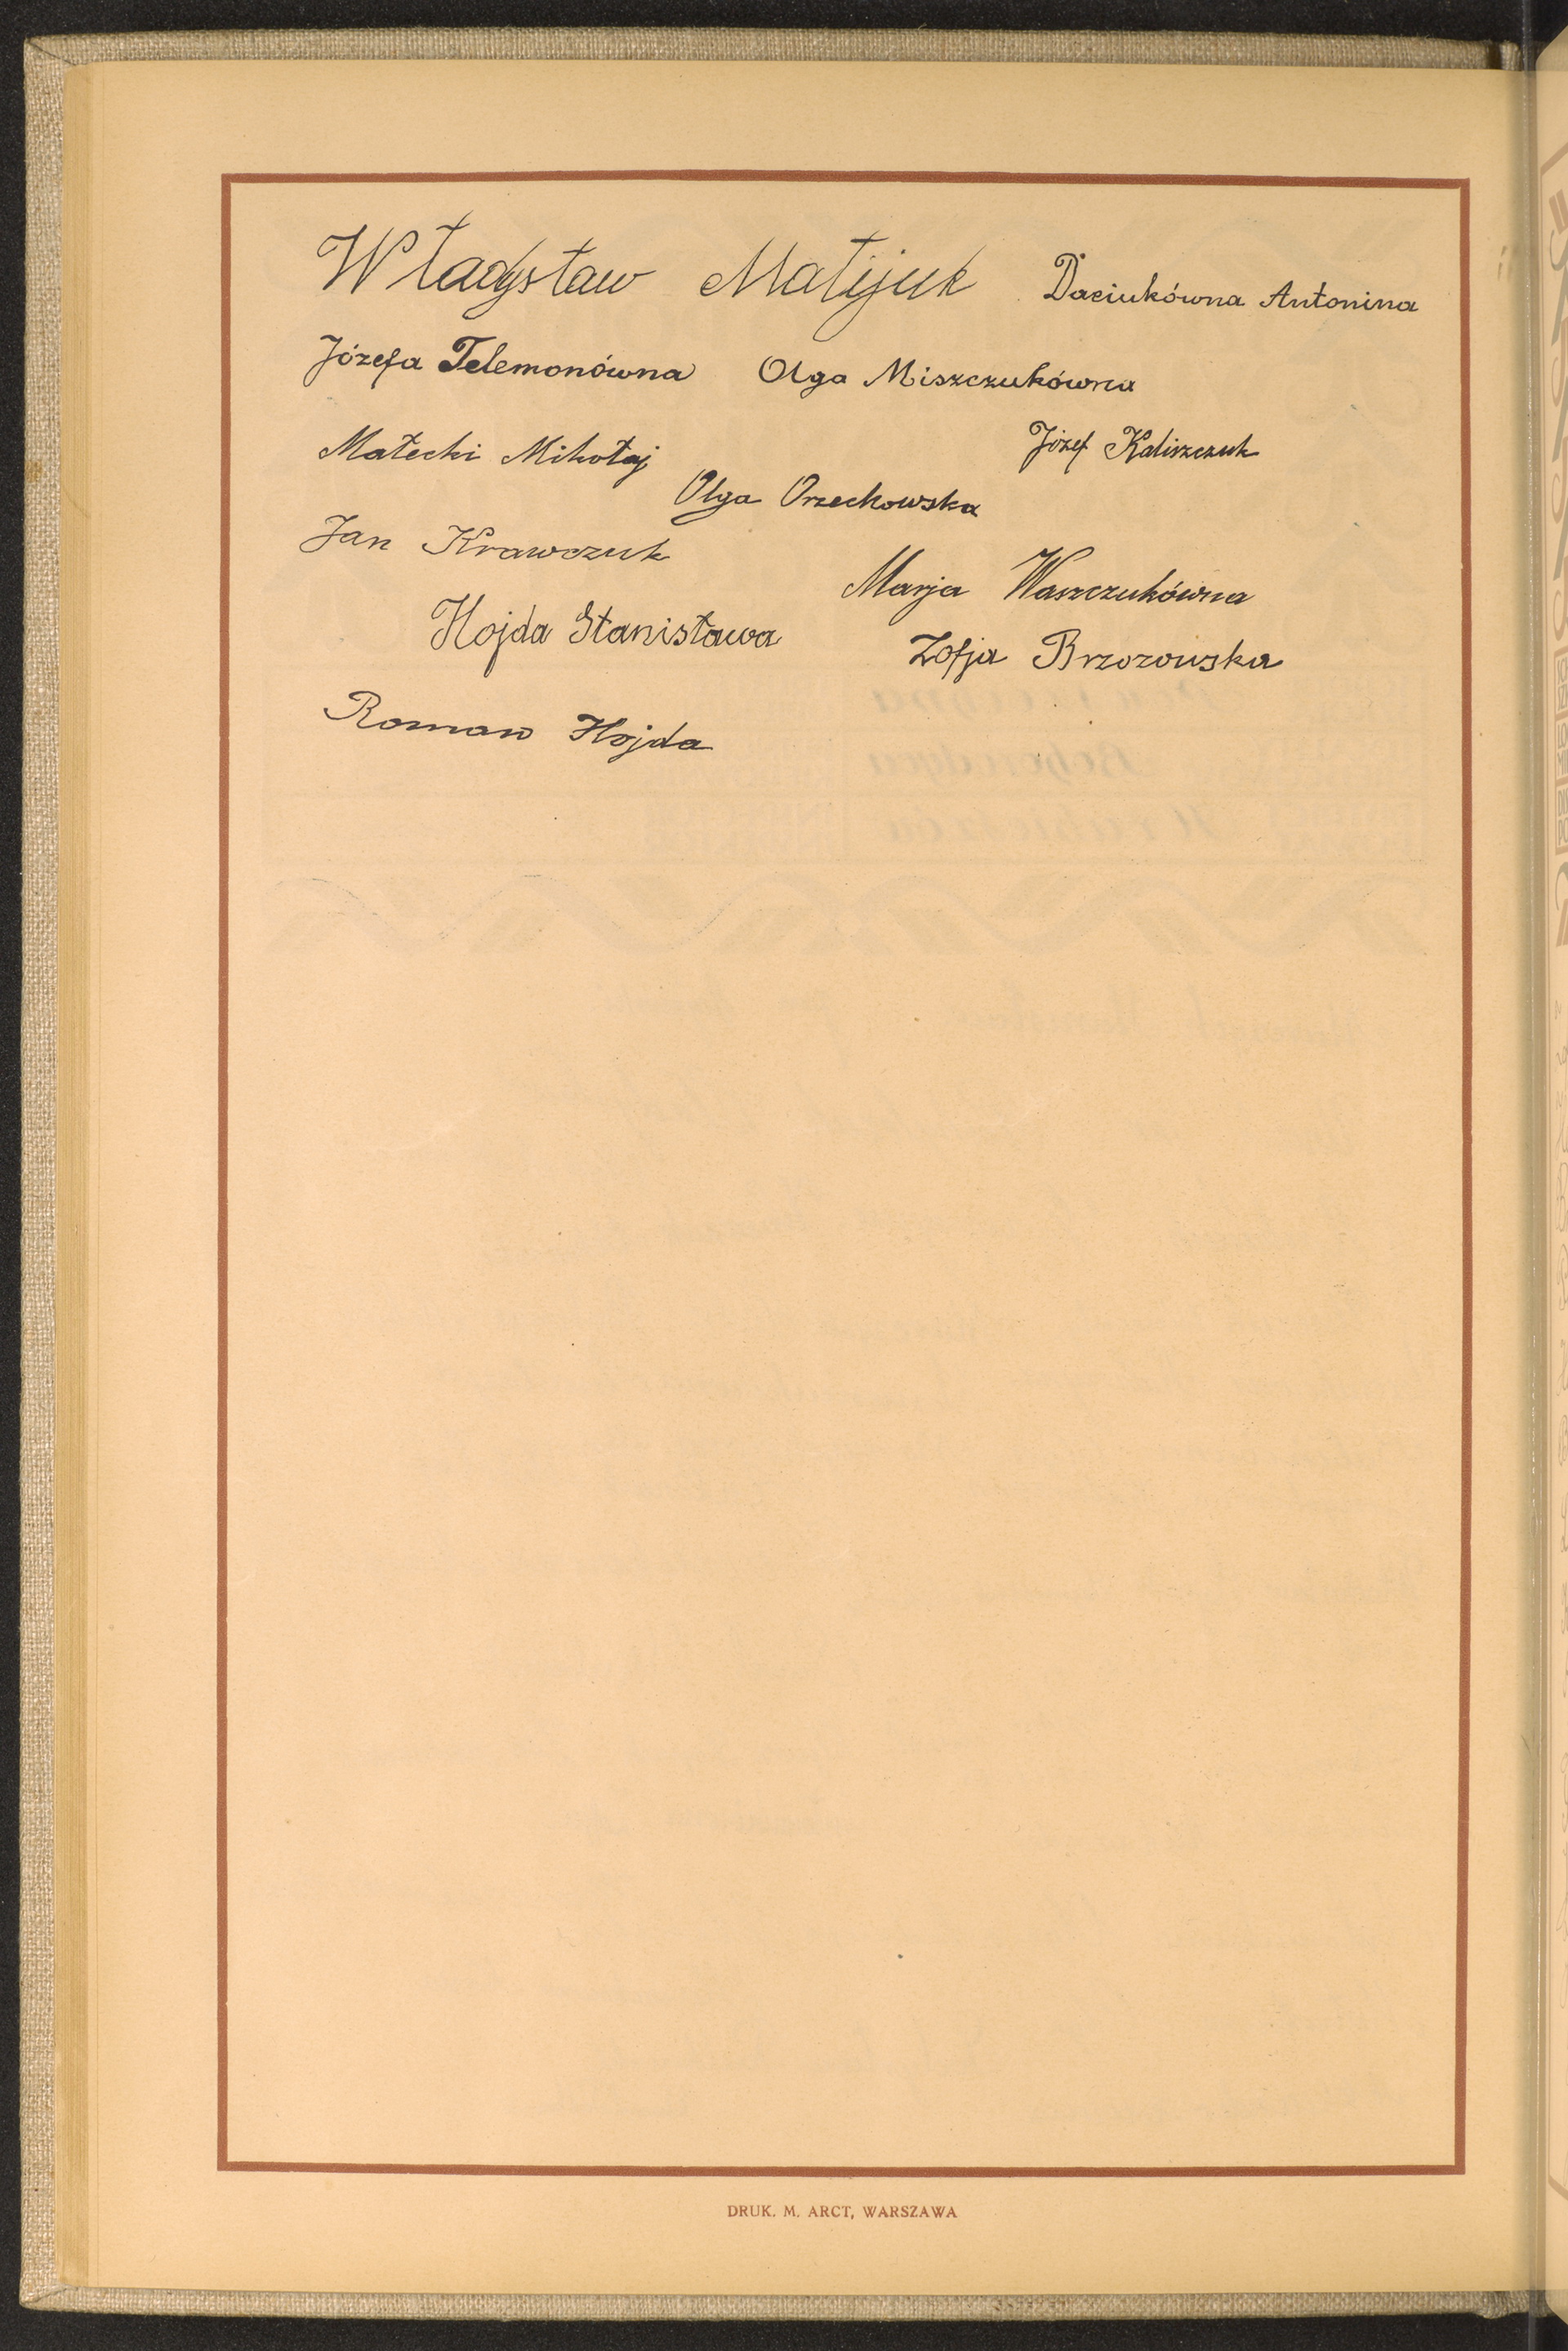 Władysław Matijuk Daciukówna Antonina
Józefa Telemonówna Olga Miszczukówna
Małecki Mikołaj Józef Kaliszczuk
Olga Orzechowska
Jan Krawczuk
Marja Waszczukówna
Hojda Stanisława
Zofja Brzozowska
Roman Hojda
DRUK. M. ARCT, WARSZAWA